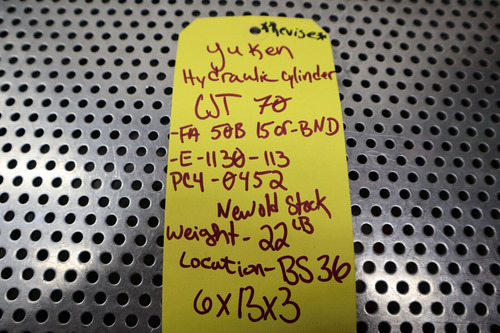 **Revise*
Yuken
Hydraulic cylinder
CJT 70
-FA 50B 150F-BND
-E-1130-113
PC4-0452
New old Stock
Weight- 22 LB
Location-BS36
6x13x3